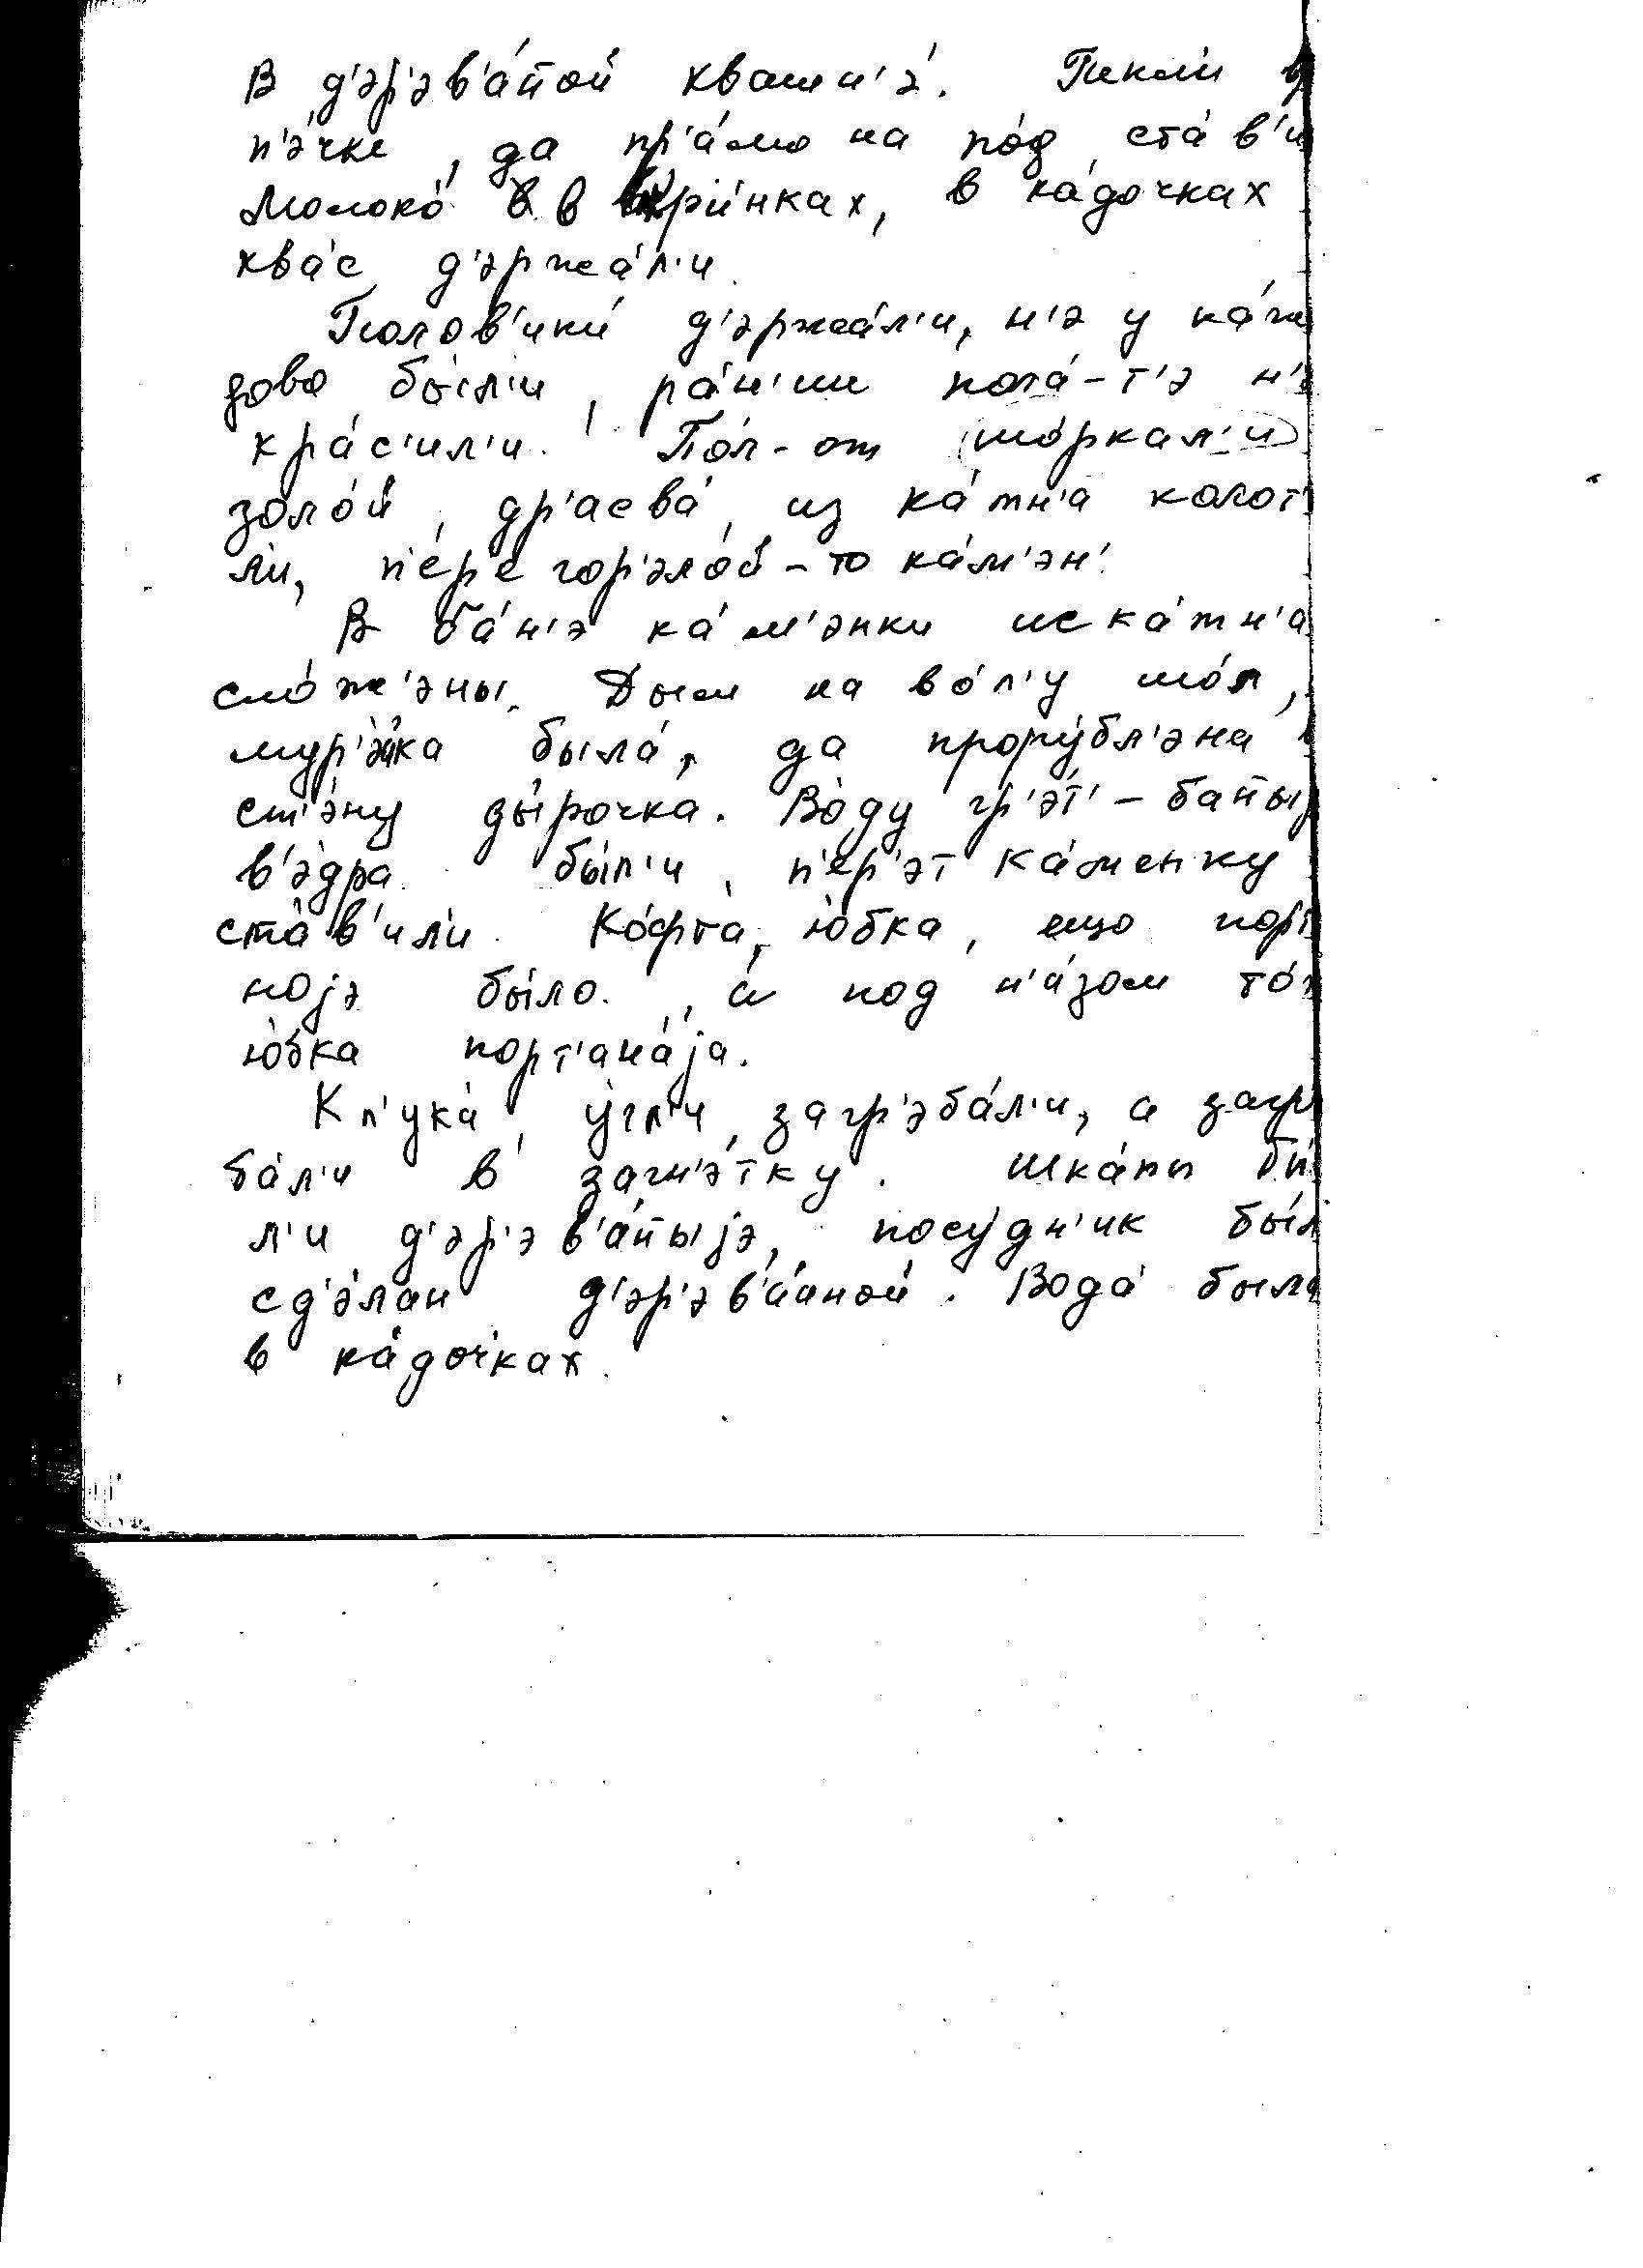 В д'эр'эв'а́н̄ой квашн'э́. Пекли́ в
п'э́чке, да пр'а́мо на по́д, ста́в'и
Молоко́ в кри́нках, в ка́дочках
ква́с д'эржа́л'и.
Полов'ики́ д'эржа́л'и, н'э у ка́ж
дово бы́л'и, ра́н'ши пола́-т'э н'э
кра́с'ил'и. По́л-от шо́ркал'и
золо́й, др'асва́, из ка́мн'а колот'
ли, п'ере гор'эло́й-то ка́м'эн'.
В ба́н'э ка́м'энки иска́мн'а
сло́ж'эны. Дым на во́л'у шо́л,
мур'э́йка была́, да прору́бл'эна
ст'э́ну ды́рочка. Во́ду гр'э́т' – бан̄ы
в'э́дра бы́л'и, п'ер'эт ка́менку
ста́в'или. Ко́фта, ю́бка, ещо порт
ноjэ бы́ло, а под н'а́зом то́ж
ю́бка порт'ана́jа.
Кл'ука́, у́гл'и загр'эба́л'и, а загр
ба́л'и в загн'э́тку. Шка́пы бы́
л'и д'эр'эв'а́н̄ыjэ, посу́дн'ик бы́л
сд'э́лан д'эр'эв'а́нной. Вода́ была
в ка́дочках.